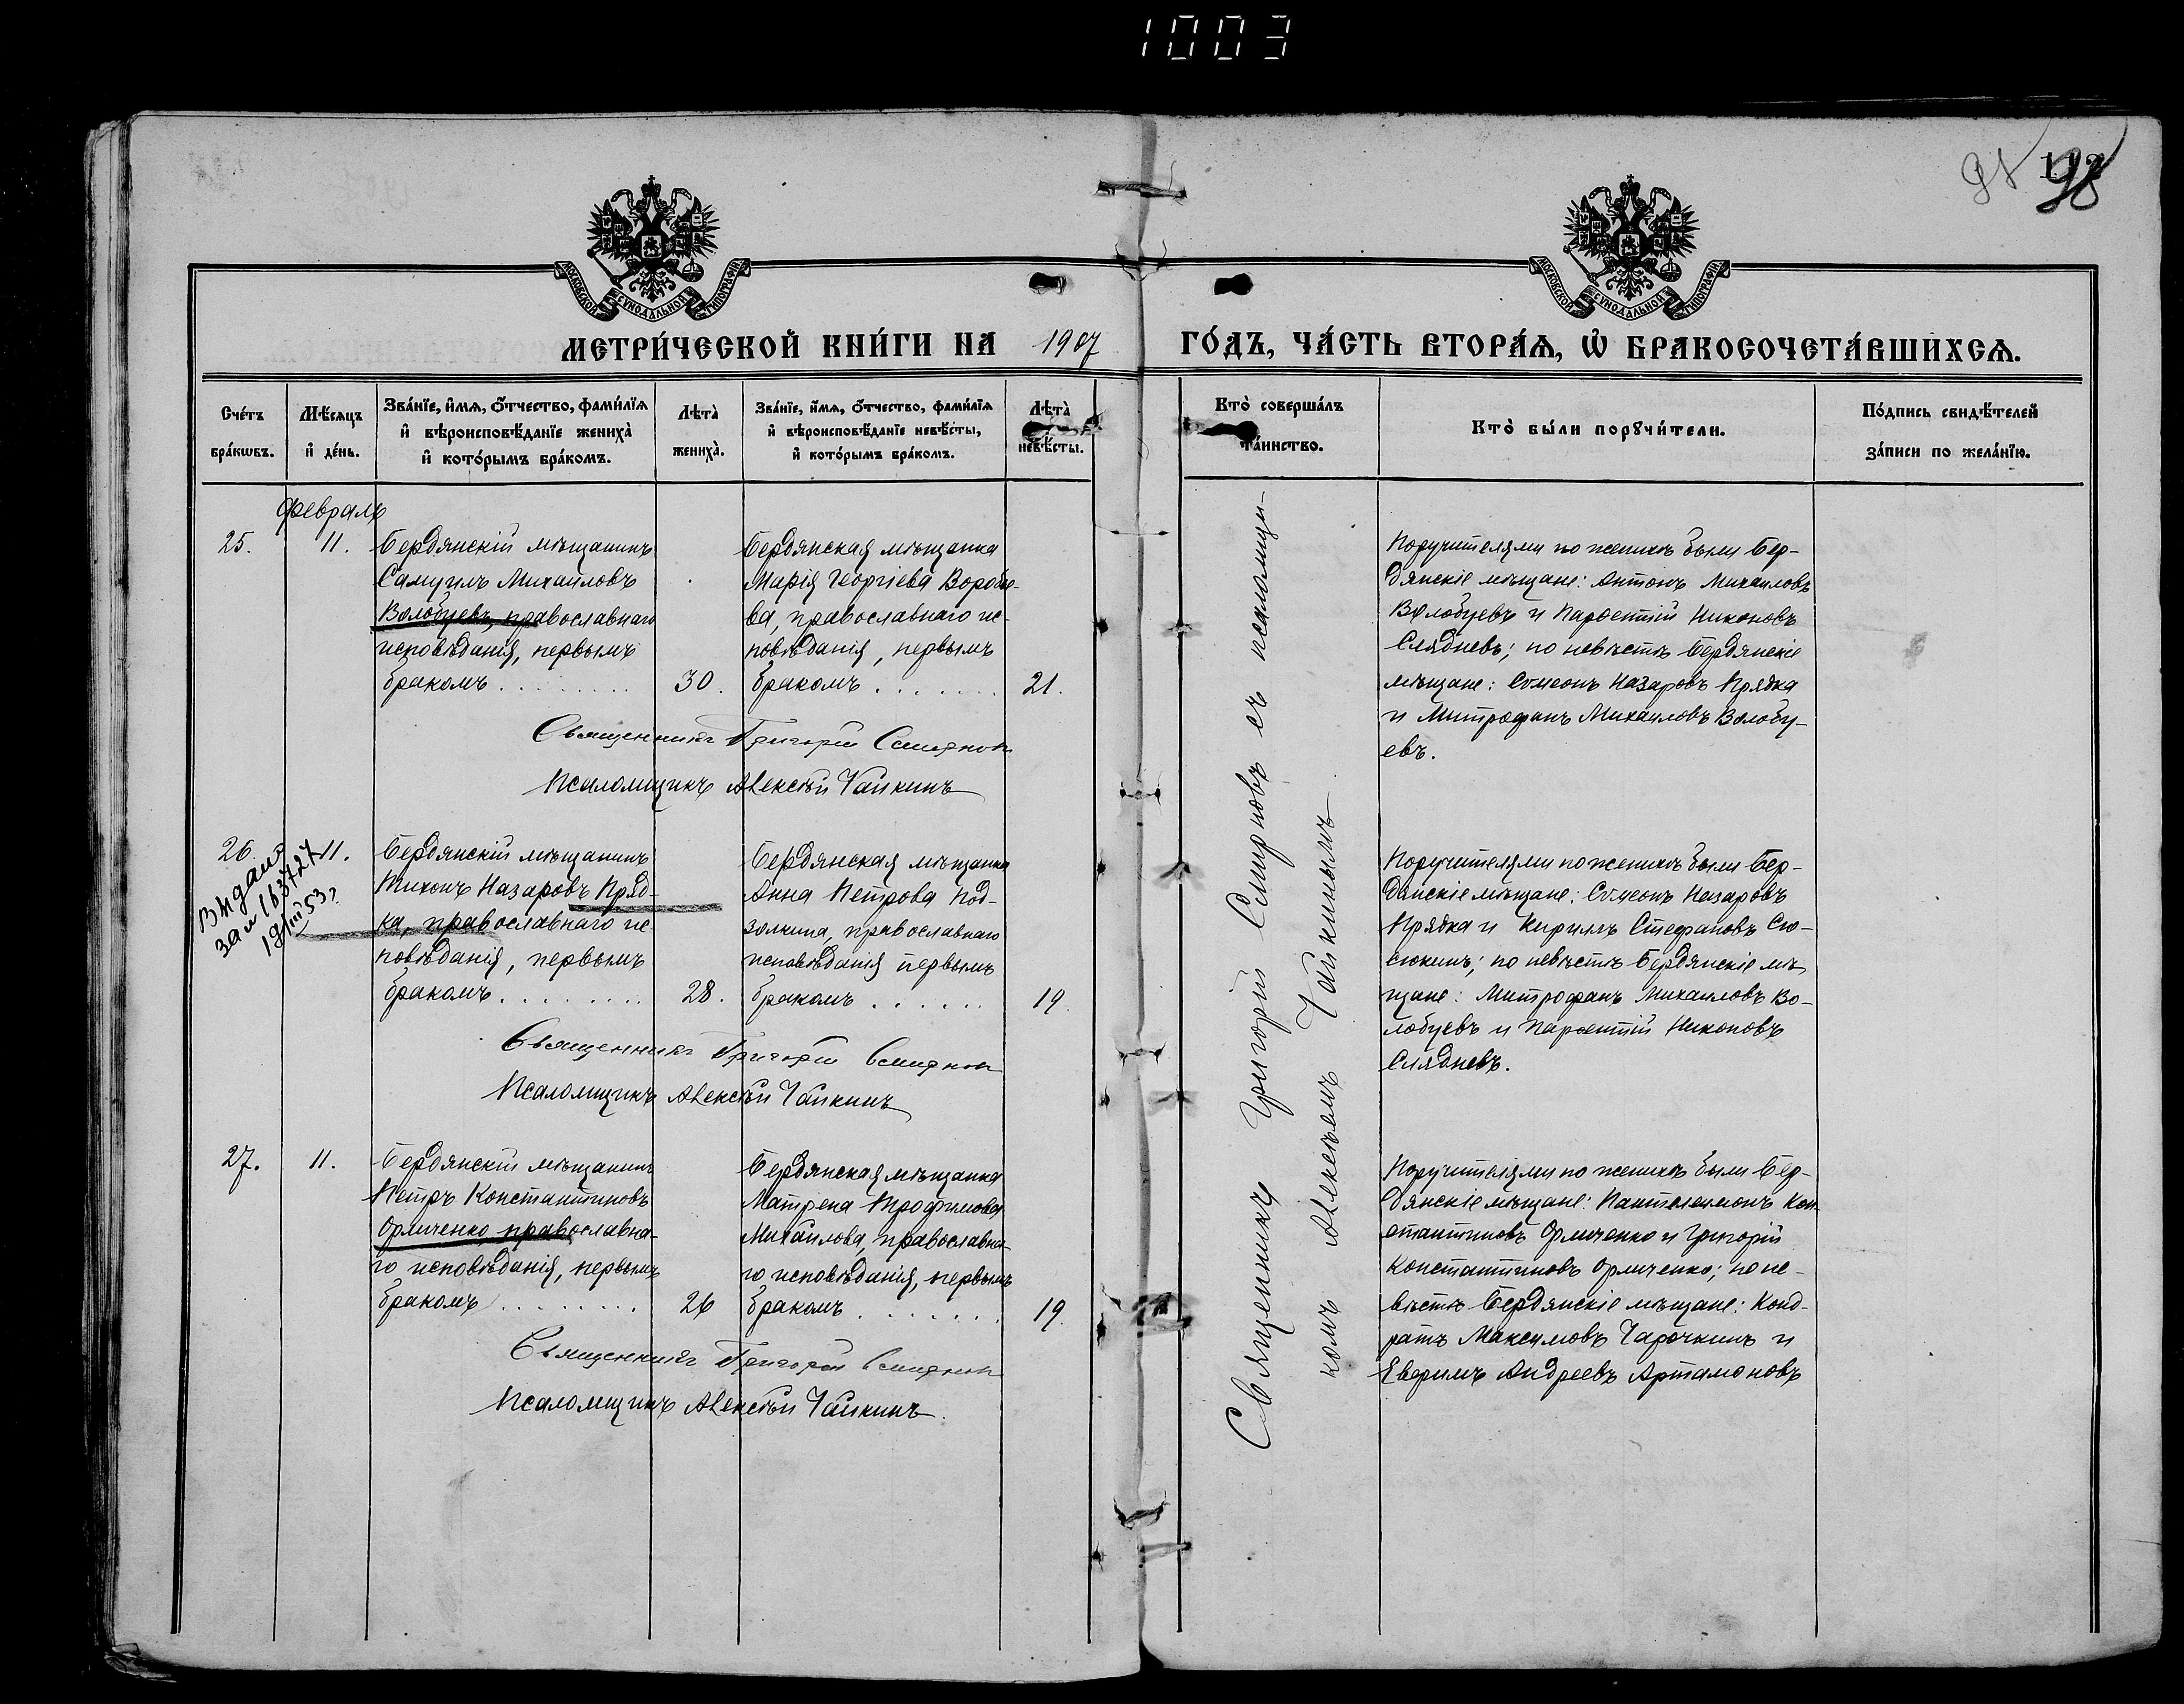 1003
98
98
МОСКОВСКОЙ СѴНОДАЛЬНОЙ ТИПОГРАФІИ
МОСКОВСКОЙ СѴНОДАЛЬНОЙ ТИПОГРАФІИ
МЕТРИ́ЧЕСКОЙ КНИ́ГИ НА 1907 ГО́ДЪ, ЧА́СТЬ ВТОРА́Я, Ѡ БРАКОСОЧЕТА́ВШИХСѦ.
Сче́тъ
бра́кѡвъ.
Мѣ́сяцъ
и де́нь.
Зва́нїе, и́мѧ, о́тчество, фами́лїѧ
и вѣроисповѣ́данїе жениха̀
и кото́рымъ бра́комъ.
Лѣта̀
жениха̀.
Зва́нїе, и́мѧ, о́тчество, фами́лїѧ
и вѣроисповѣ́данїе невѣ́сты,
и кото́рымъ бра́комъ.
Лѣта̀
невѣ́сты.
Кто̀ соверша́лъ
та́инство.
Кто̀ бы́ли порꙋчи́тели.
По́дпись свидѣ́телей
за́писи по жела́нїю.
Февраль
25.
11.
Бердянскій мѣщанинъ
Самуилъ Михаиловъ
Волобуевъ, православнаго
исповѣданія, первымъ
бракомъ . . . . . . . .
30.
Бердянская мѣщанка
Марія Георгіева Воробье-
ва, православнаго ис-
повѣданія, первымъ
бракомъ . . . . . . .
21.
Поручителями по женихѣ были Бер-
дянскіе мѣщане: Антонъ Михаиловъ
Волобуевъ и Парѳентій Никоновъ
Слядневъ; по невѣстѣ Бердянскіе
мѣщане: Сѵмеонъ Назаровъ Прядка
и Митрофанъ Михаиловъ Волобу-
евъ.
Священникъ Григорій Смирновъ
Псаломщикъ Алексѣй Чайкинъ
26.
11.
Видана
19/III 53 г
Бердянскій мѣщанинъ
Тихонъ Назаровъ Пряд-
ка, православнаго ис-
повѣданія, первымъ
бракомъ . . . . . . . .
28.
Бердянская мѣщанка
Анна Петрова Под-
золкина, православнаго
исповѣданія первымъ
бракомъ . . . . . .
19.
Поручителями по женихѣ были Бер-
дянскіе мѣщане: Сѵмеонъ Назаровъ
Прядка и Кириллъ Стефановъ Сю-
сюкинъ; по невѣстѣ Бердянскіе мѣ-
щане: Митрофанъ Михаиловъ Во-
лобуевъ и Парѳентій Никоновъ
Слядневъ.
Священникъ Григорій Смирновъ
Псаломщикъ Алексѣй Чайкинъ
27.
11.
Бердянскій мѣщанинъ
Петръ Константиновъ
Орличенко православна-
го исповѣданія, первымъ
бракомъ . . . . . . . .
26
Бердянская мѣщанка
Матрена Трофимова
Михаилова, православна-
го исповѣданія, первымъ
бракомъ . . . . . . .
19.
Поручителями по женихѣ были Бер-
дянскіе мѣщане: Пантелеимонъ Кон-
стантиновъ Орличенко и Григорій
Константиновъ Орличенко; по не-
вѣстѣ Бердянскіе мѣщане: Конд-
ратъ Максимовъ Чарочкинъ и
Евфимъ Андреевъ Артамоновъ
Священникъ Григорій Смирновъ
Псаломщикъ Алексѣй Чайкинъ.
Священникъ Григорій Смирновъ съ псаломщи-
комъ Алексѣемъ Чайкинымъ